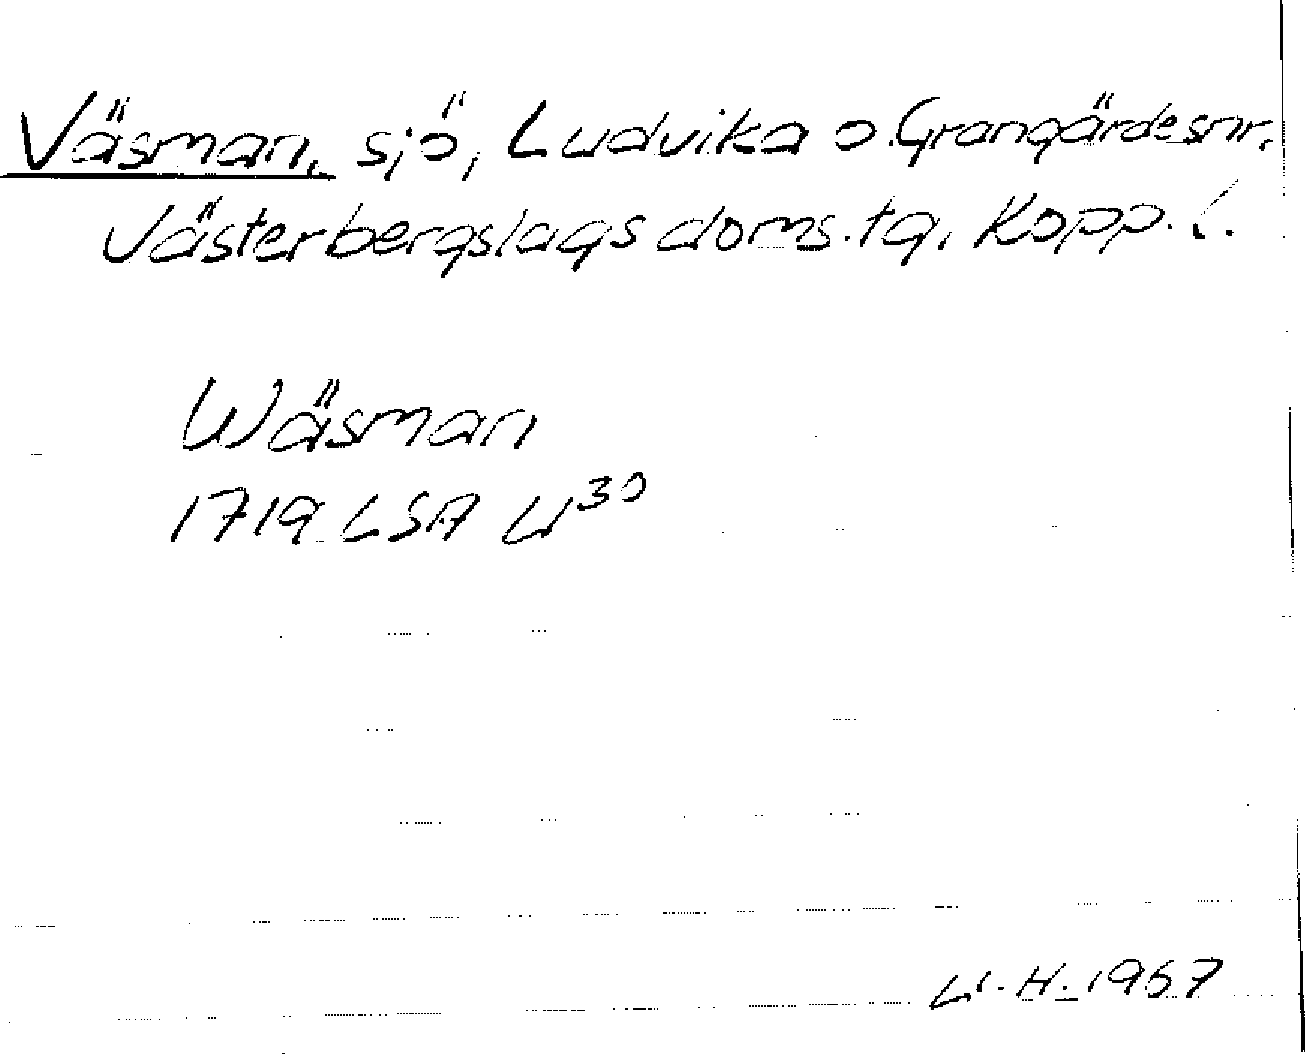 Väsman, sjö, Ludvika o. Grangärde snr.
Västerbergslags doms. tg, Kopp. l.
Wäsman
1719 LSA U³⁰
H. 1967